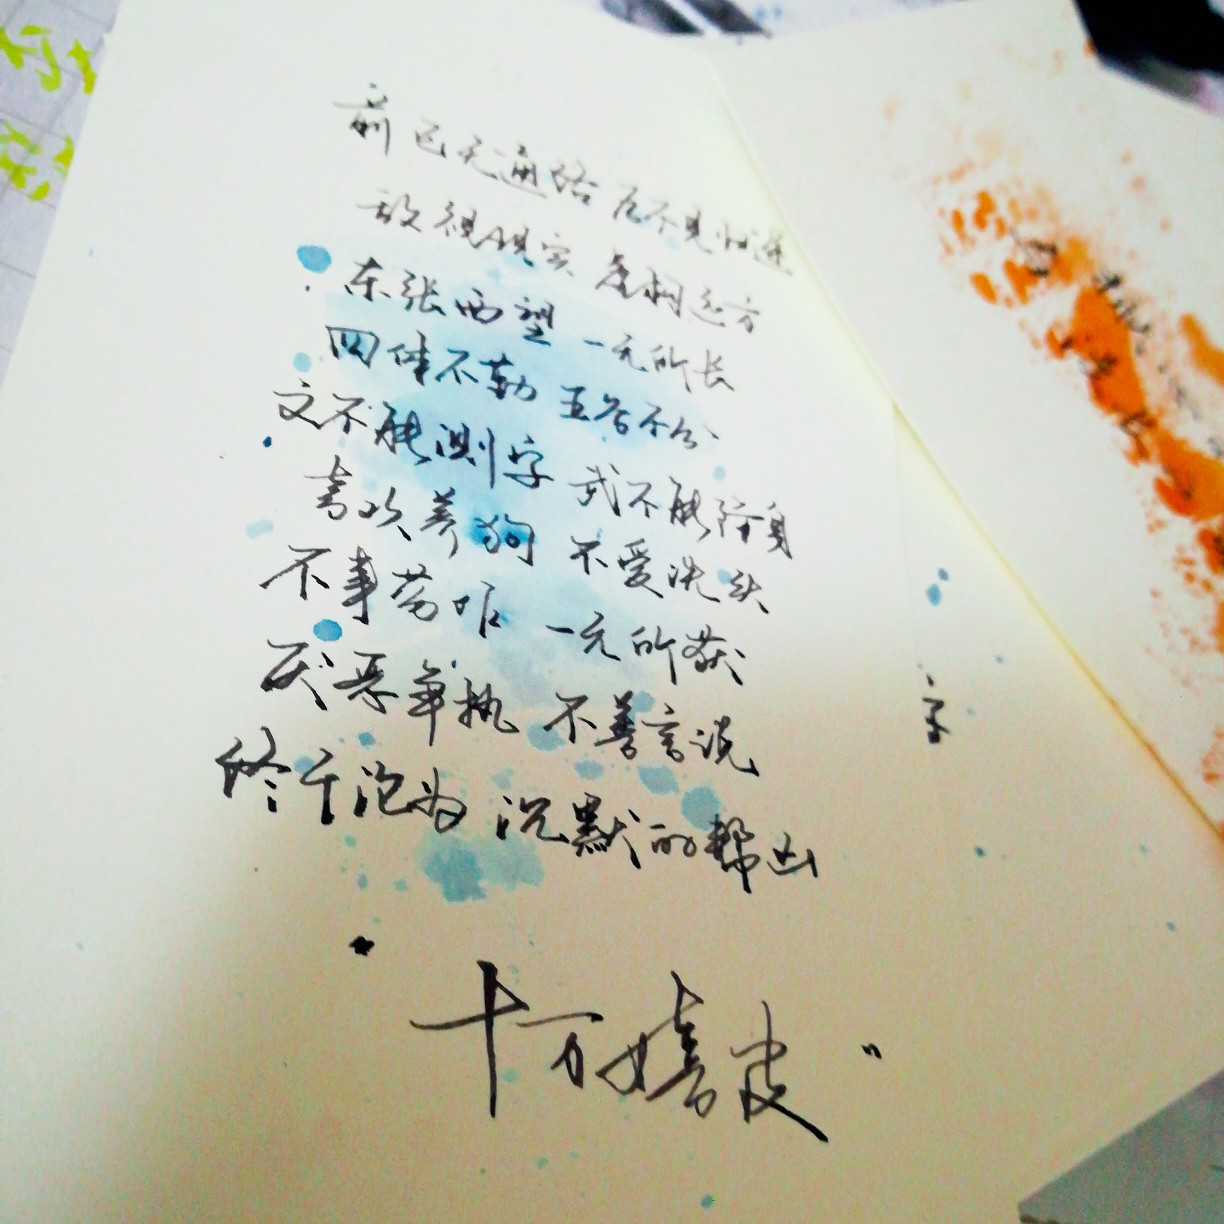 前已无通路 后不见归途
敌视现实 虚构远方
东张西望 一无所长
四体不勤 五谷不分
文不能测字 武不能防身
喜欢养狗 不爱洗头
不事劳作 一无所获
厌恶争执 不善言说
终于沦为 沉默的帮凶
十万嬉皮"